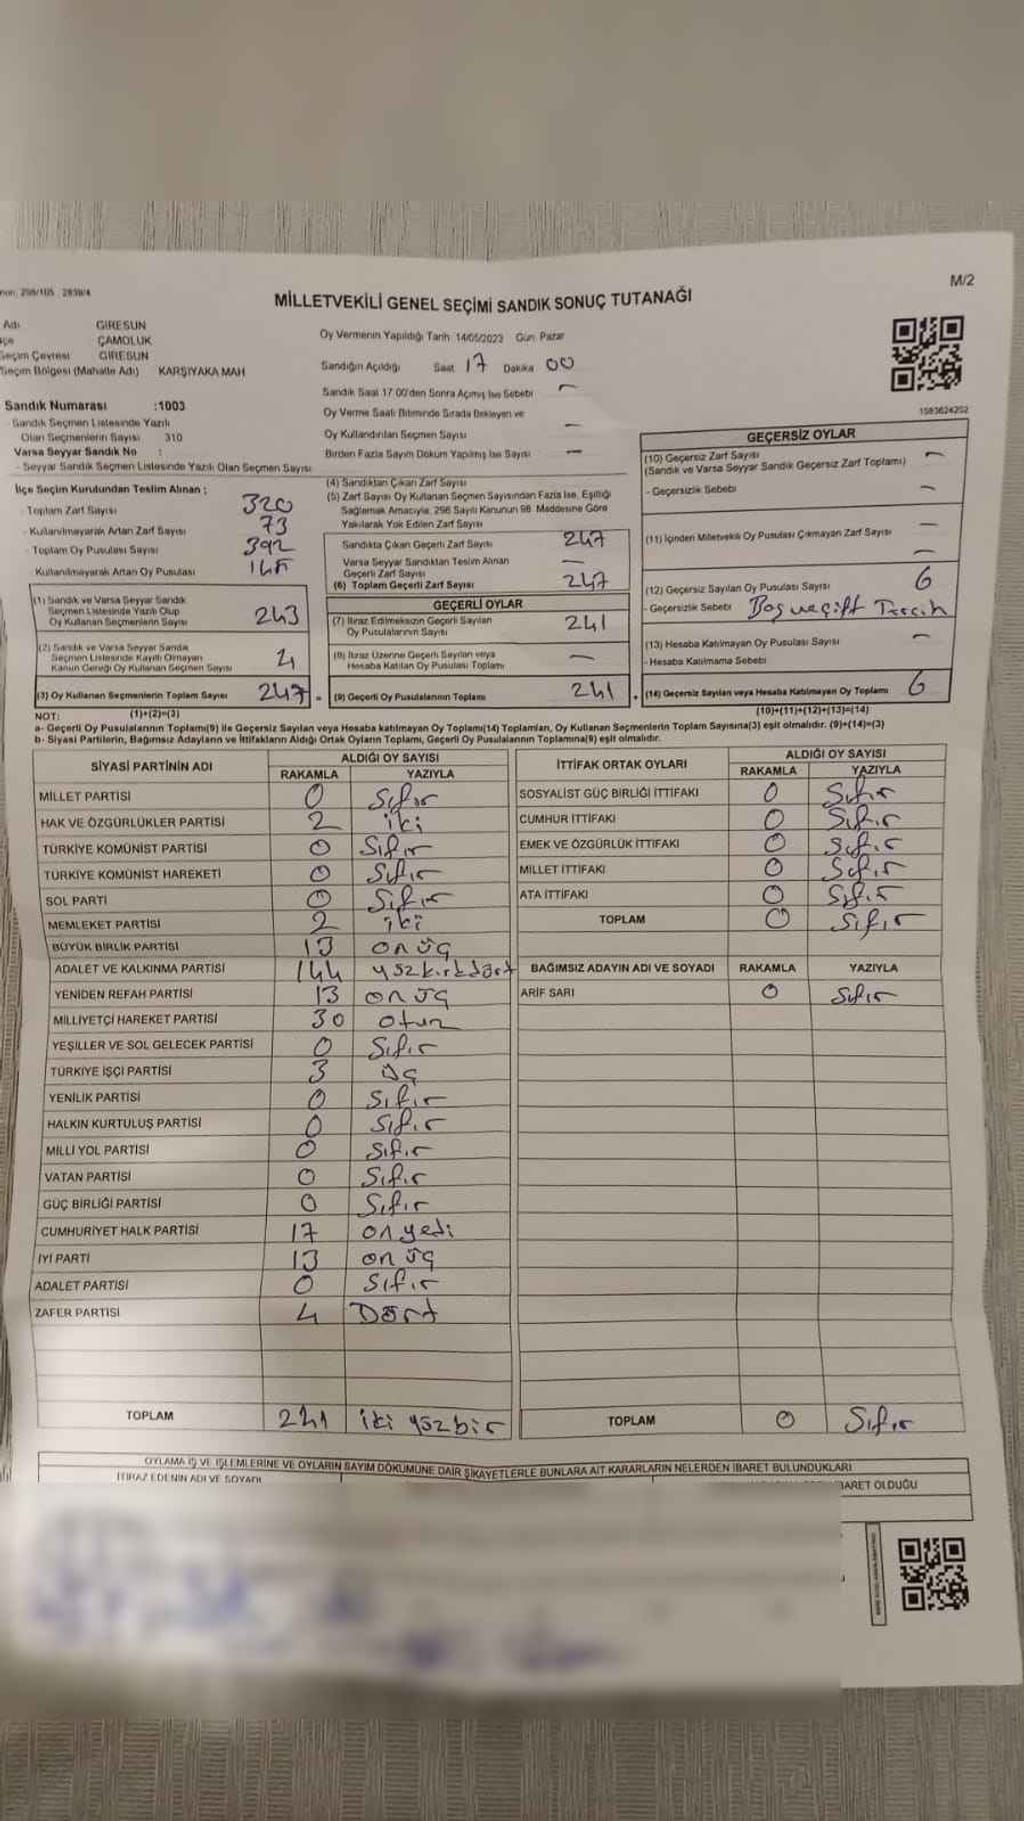 M/2
MİLLETVEKİLİ GENEL SEÇİMİ SANDIK SONUÇ TUTANAĞI
Adı GİRESUN
ÇAMOLUK
Seçim Çevresi GİRESUN
Seçim Bölgesi (Mahalle Adı) KARŞIYAKA MAH
Sandık Numarası :1003
Sandık Seçmen Listesinde Yazılı
Olan Seçmenlerin Sayısı 310
Varsa Seyyar Sandık No :
- Seyyar Sandık Seçmen Listesinde Yazılı Olan Seçmen Sayısı
Oy Vermenin Yapıldığı Tarih 14/05/2023 Gün Pazar
Sandığın Açıldığı Saat 17 Dakika 00
Sandık Saat 17:00'den Sonra Açılmış İse Sebebi –
Oy Verme Saati Bitiminde Sırada Bekleyen ve
Oy Kullandırılan Seçmen Sayısı –
Birden Fazla Sayım Döküm Yapılmış İse Sayısı –
1583624202
İlçe Seçim Kurulundan Teslim Alınan :
- Toplam Zarf Sayısı 320
- Kullanılmayarak Artan Zarf Sayısı 73
- Toplam Oy Pusulası Sayısı 392
Kullanılmayarak Artan Oy Pusulası
(1) Sandık ve Varsa Seyyar Sandık
Seçmen Listesinde Yazılı Olup
Oy Kullanan Seçmenlerin Sayısı 243
(2) Sandık ve Varsa Seyyar Sandık
Seçmen Listesinde Kayıtlı Olmayan
Kanun Gereği Oy Kullanan Seçmen Sayısı 4
(3) Oy Kullanan Seçmenlerin Toplam Sayısı 247
(1)+(2)=(3)
(4) Sandıktan Çıkan Zarf Sayısı
(5) Zarf Sayısı Oy Kullanan Seçmen Sayısından Fazla İse, Eşitliği
Sağlamak Amacıyla, 298 Sayılı Kanunun 98. Maddesine Göre
Yakılarak Yok Edilen Zarf Sayısı
Sandıkta Çıkan Geçerli Zarf Sayısı 247
Varsa Seyyar Sandıktan Teslim Alınan
Geçerli Zarf Sayısı –
(6) Toplam Geçerli Zarf Sayısı 247
GEÇERLİ OYLAR
(7) İtiraz Edilmeksizin Geçerli Sayılan
Oy Pusulalarının Sayısı 241
(8) İtiraz Üzerine Geçerli Sayılan veya
Hesaba Katılan Oy Pusulası Toplamı –
(9) Geçerli Oy Pusulalarının Toplamı 241
GEÇERSİZ OYLAR
(10) Geçersiz Zarf Sayısı –
(Sandık ve Varsa Seyyar Sandık Geçersiz Zarf Toplamı)
- Geçersizlik Sebebi –
(11) İçinden Milletvekili Oy Pusulası Çıkmayan Zarf Sayısı –
(12) Geçersiz Sayılan Oy Pusulası Sayısı 6
- Geçersizlik Sebebi Boş ve çift Tercih
(13) Hesaba Katılmayan Oy Pusulası Sayısı –
- Hesaba Katılmama Sebebi
(14) Geçersiz Sayılan veya Hesaba Katılmayan Oy Toplamı 6
(10)+(11)+(12)+(13)=(14)
NOT:
a- Geçerli Oy Pusulalarının Toplamı(9) ile Geçersiz Sayılan veya Hesaba katılmayan Oy Toplamı(14) Toplamları, Oy Kullanan Seçmenlerin Toplam Sayısına(3) eşit olmalıdır. (9)+(14)=(3)
b- Siyasi Partilerin, Bağımsız Adayların ve İttifakların Aldığı Ortak Oyların Toplamı, Geçerli Oy Pusulalarının Toplamına(9) eşit olmalıdır.
SİYASİ PARTİNİN ADI ALDIĞI OY SAYISI
RAKAMLA YAZIYLA
MİLLET PARTİSİ 0 Sıfır
HAK VE ÖZGÜRLÜKLER PARTİSİ 2 iki
TÜRKİYE KOMÜNİST PARTİSİ 0 Sıfır
TÜRKİYE KOMÜNİST HAREKETİ 0 Sıfır
SOL PARTİ 0 Sıfır
MEMLEKET PARTİSİ 2 iki
BÜYÜK BİRLİK PARTİSİ 13 on üç
ADALET VE KALKINMA PARTİSİ 144 yüzkırkdört
YENİDEN REFAH PARTİSİ 13 on üç
MİLLİYETÇİ HAREKET PARTİSİ 30 otuz
YEŞİLLER VE SOL GELECEK PARTİSİ 0 Sıfır
TÜRKİYE İŞÇİ PARTİSİ 3 üç
YENİLİK PARTİSİ 0 Sıfır
HALKIN KURTULUŞ PARTİSİ 0 Sıfır
MİLLİ YOL PARTİSİ 0 Sıfır
VATAN PARTİSİ 0 Sıfır
GÜÇ BİRLİĞİ PARTİSİ 0 Sıfır
CUMHURİYET HALK PARTİSİ 17 on yedi
İYİ PARTİ 13 on üç
ADALET PARTİSİ 0 Sıfır
ZAFER PARTİSİ 4 Dört
TOPLAM 241 iki yüz bir
İTTİFAK ORTAK OYLARI ALDIĞI OY SAYISI
RAKAMLA YAZIYLA
SOSYALİST GÜÇ BİRLİĞİ İTTİFAKI 0 Sıfır
CUMHUR İTTİFAKI 0 Sıfır
EMEK VE ÖZGÜRLÜK İTTİFAKI 0 Sıfır
MİLLET İTTİFAKI 0 Sıfır
ATA İTTİFAKI 0 Sıfır
TOPLAM 0 Sıfır
BAĞIMSIZ ADAYIN ADI VE SOYADI RAKAMLA YAZIYLA
ARİF SARI 0 Sıfır
TOPLAM 0 Sıfır
OYLAMA İŞ VE İŞLEMLERİNE VE OYLARIN SAYIM DÖKÜMÜNE DAİR ŞİKAYETLERLE BUNLARA AİT KARARLARIN NELERDEN İBARET BULUNDUKLARI
İTİRAZ EDENİN ADI VE SOYADI
İBARET OLDUĞU